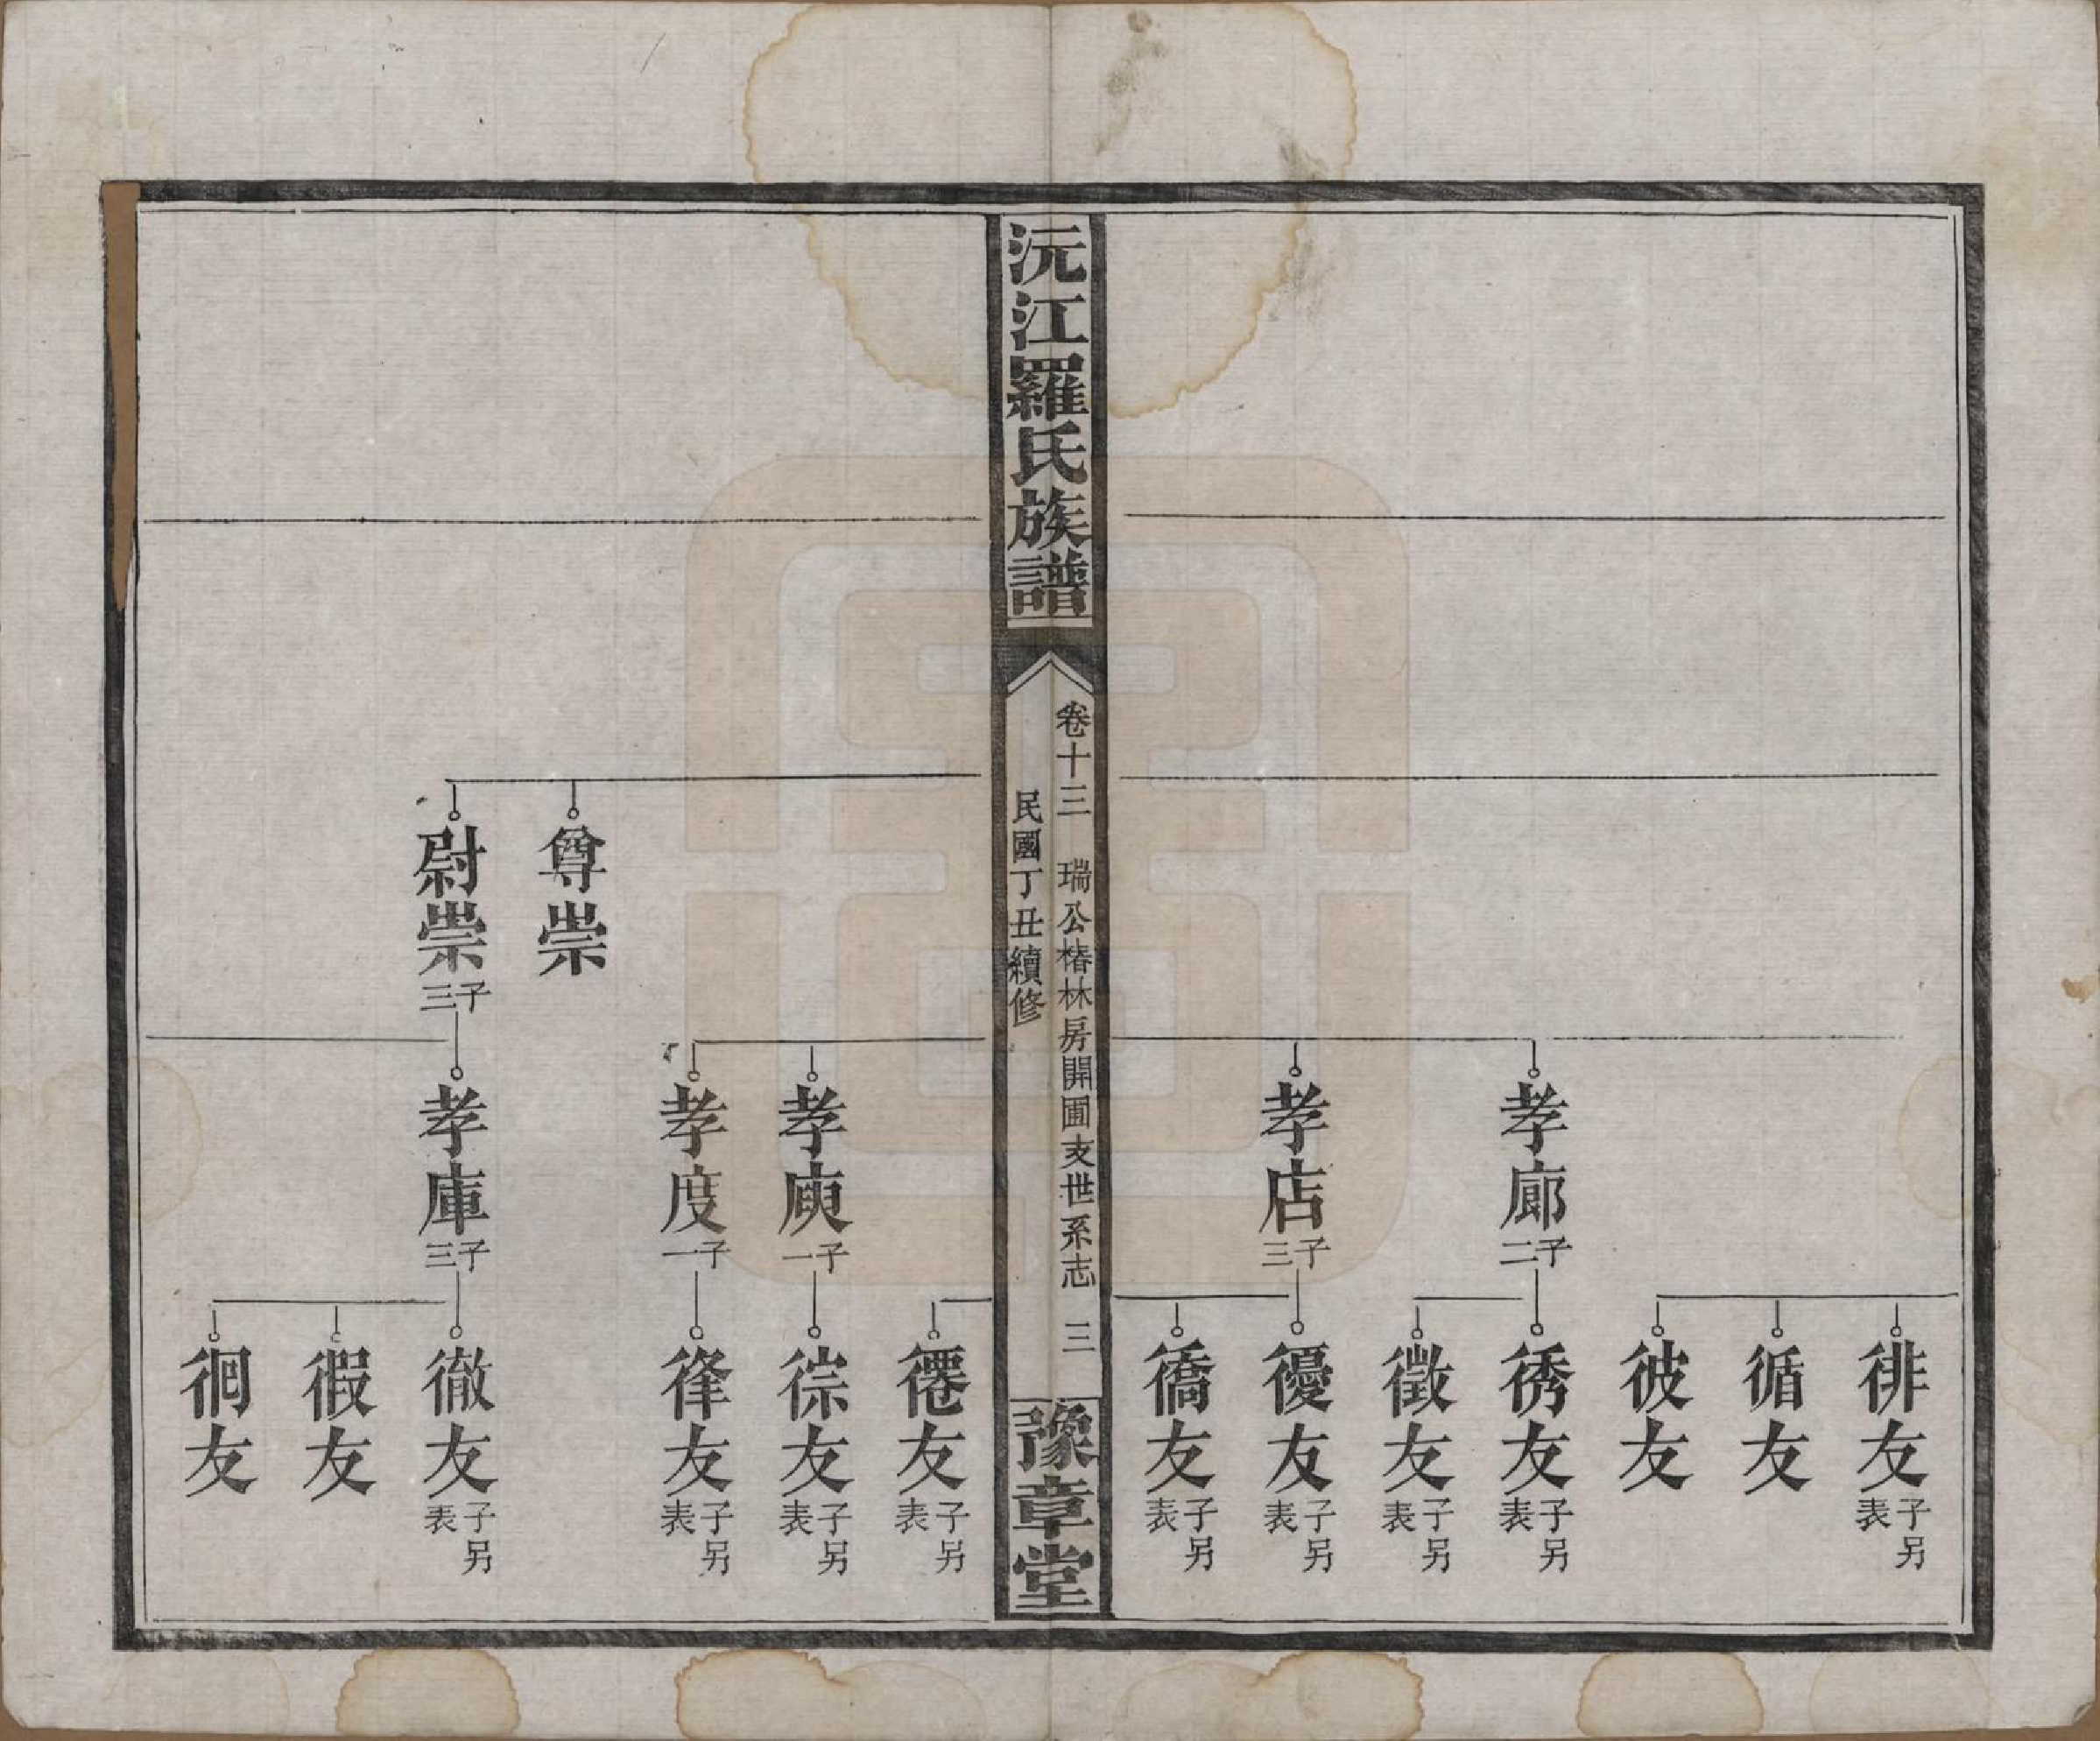 徘友 子另表
循友
彼友
孝廊 二子
𢓭友 子另表
徵友 子另表
孝店 三子
優友 子另表
僑友 子另表
沅江羅氏族譜
卷十三 瑞公椿林房開圃支世系志 三
民國丁丑續修
豫章堂
僊友 子另表
孝庾 一子
徖友 子另表
孝度 一子
徍友 子另表
尊崇
尉崇 三子
孝庫 三子
徹友 子另表
徦友
徊友